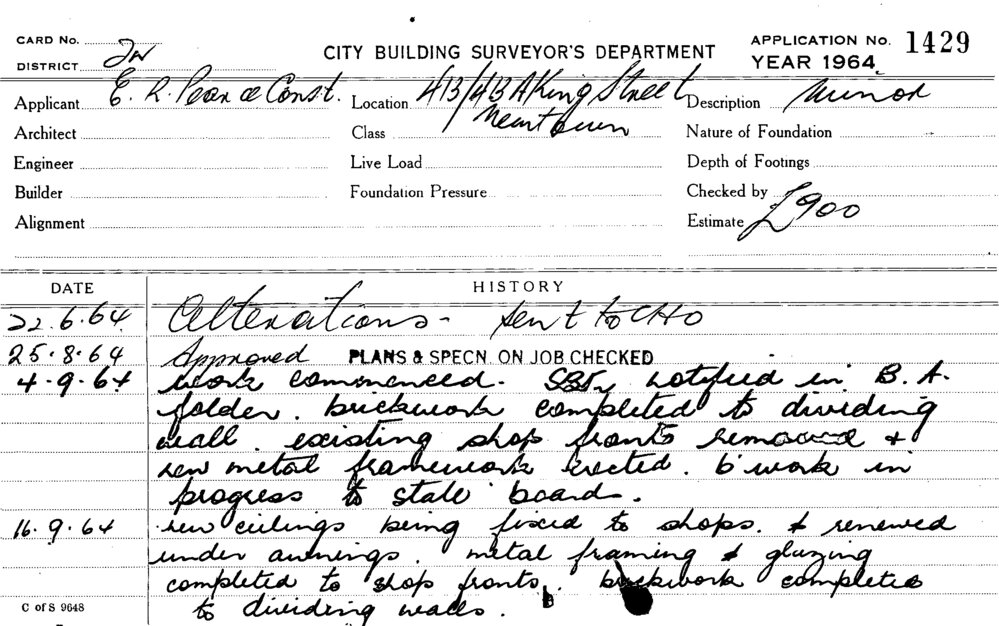 CARD No.
DISTRICT
CITY BUILDING SURVEYOR'S DEPARTMENT
APPLICATION No. 1429
YEAR 1964
Applicant E. R. Pearce Const. Location 413/413A King Street Description Minor
Architect Class Newtown Nature of Foundation
Engineer Live Load Depth of Footings
Builder Foundation Pressure Checked by
Alignment Estimate £900
DATE HISTORY
22.6.64 Alterations - Sent to CHO
25.8.64 Approved PLANS & SPECN. ON JOB CHECKED
4.9.64 work commenced. notified in B.A.
folder. brickwork completed to dividing
wall. existing shop fronts removed &
new metal framework erected. b'work in
progress to stale board.
16.9.64 new ceilings being fixed to shops. & renewed
under awnings. metal framing & glazing
completed to shop fronts. brickwork completed
to dividing walls.
C of S 9648